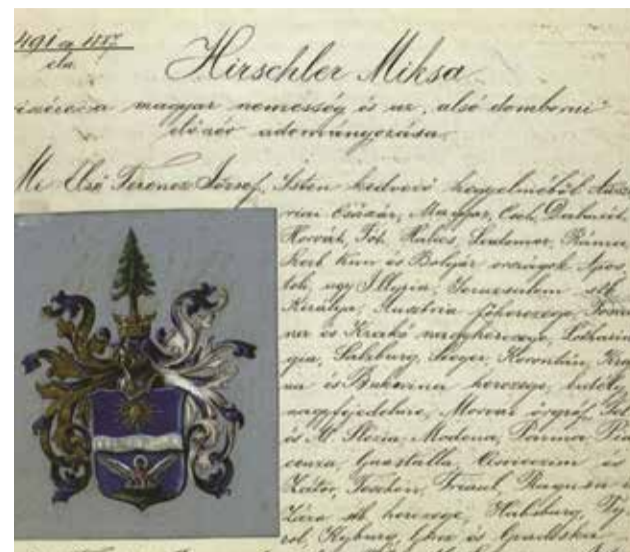 Hirschler Miksa
magyar nemesség és az „alsó domborui”
előnév adományozása.
Mi Első Ferencz József, Isten kedvező kegyelméből Ausz
riai Császár, Magyar, Cseh, Dalmát,
Horvát, Tót, Halics, Lodomér, Ráma,
Szerb Kún és Bolgár országok Apos
toli, úgy Illyria, Jeruzsálem stb
Királya, Ausztria főherczege,
és Krakó nagyherczege, Lotharin
gia, Salzburg, Steyer, Korontán, Kraj
na és Bukovina herczege, Erdély
nagyfejedelme, Morva őrgróf, Fel
és Al Szlézia, Modena, Parma, Pia
cenza, Guastalla, és
Zátor, Teschen, Friaul, Raguza és
Zára stb herczege, Habsburg, Ty
rol, Kyburg, Görz és Gradiska